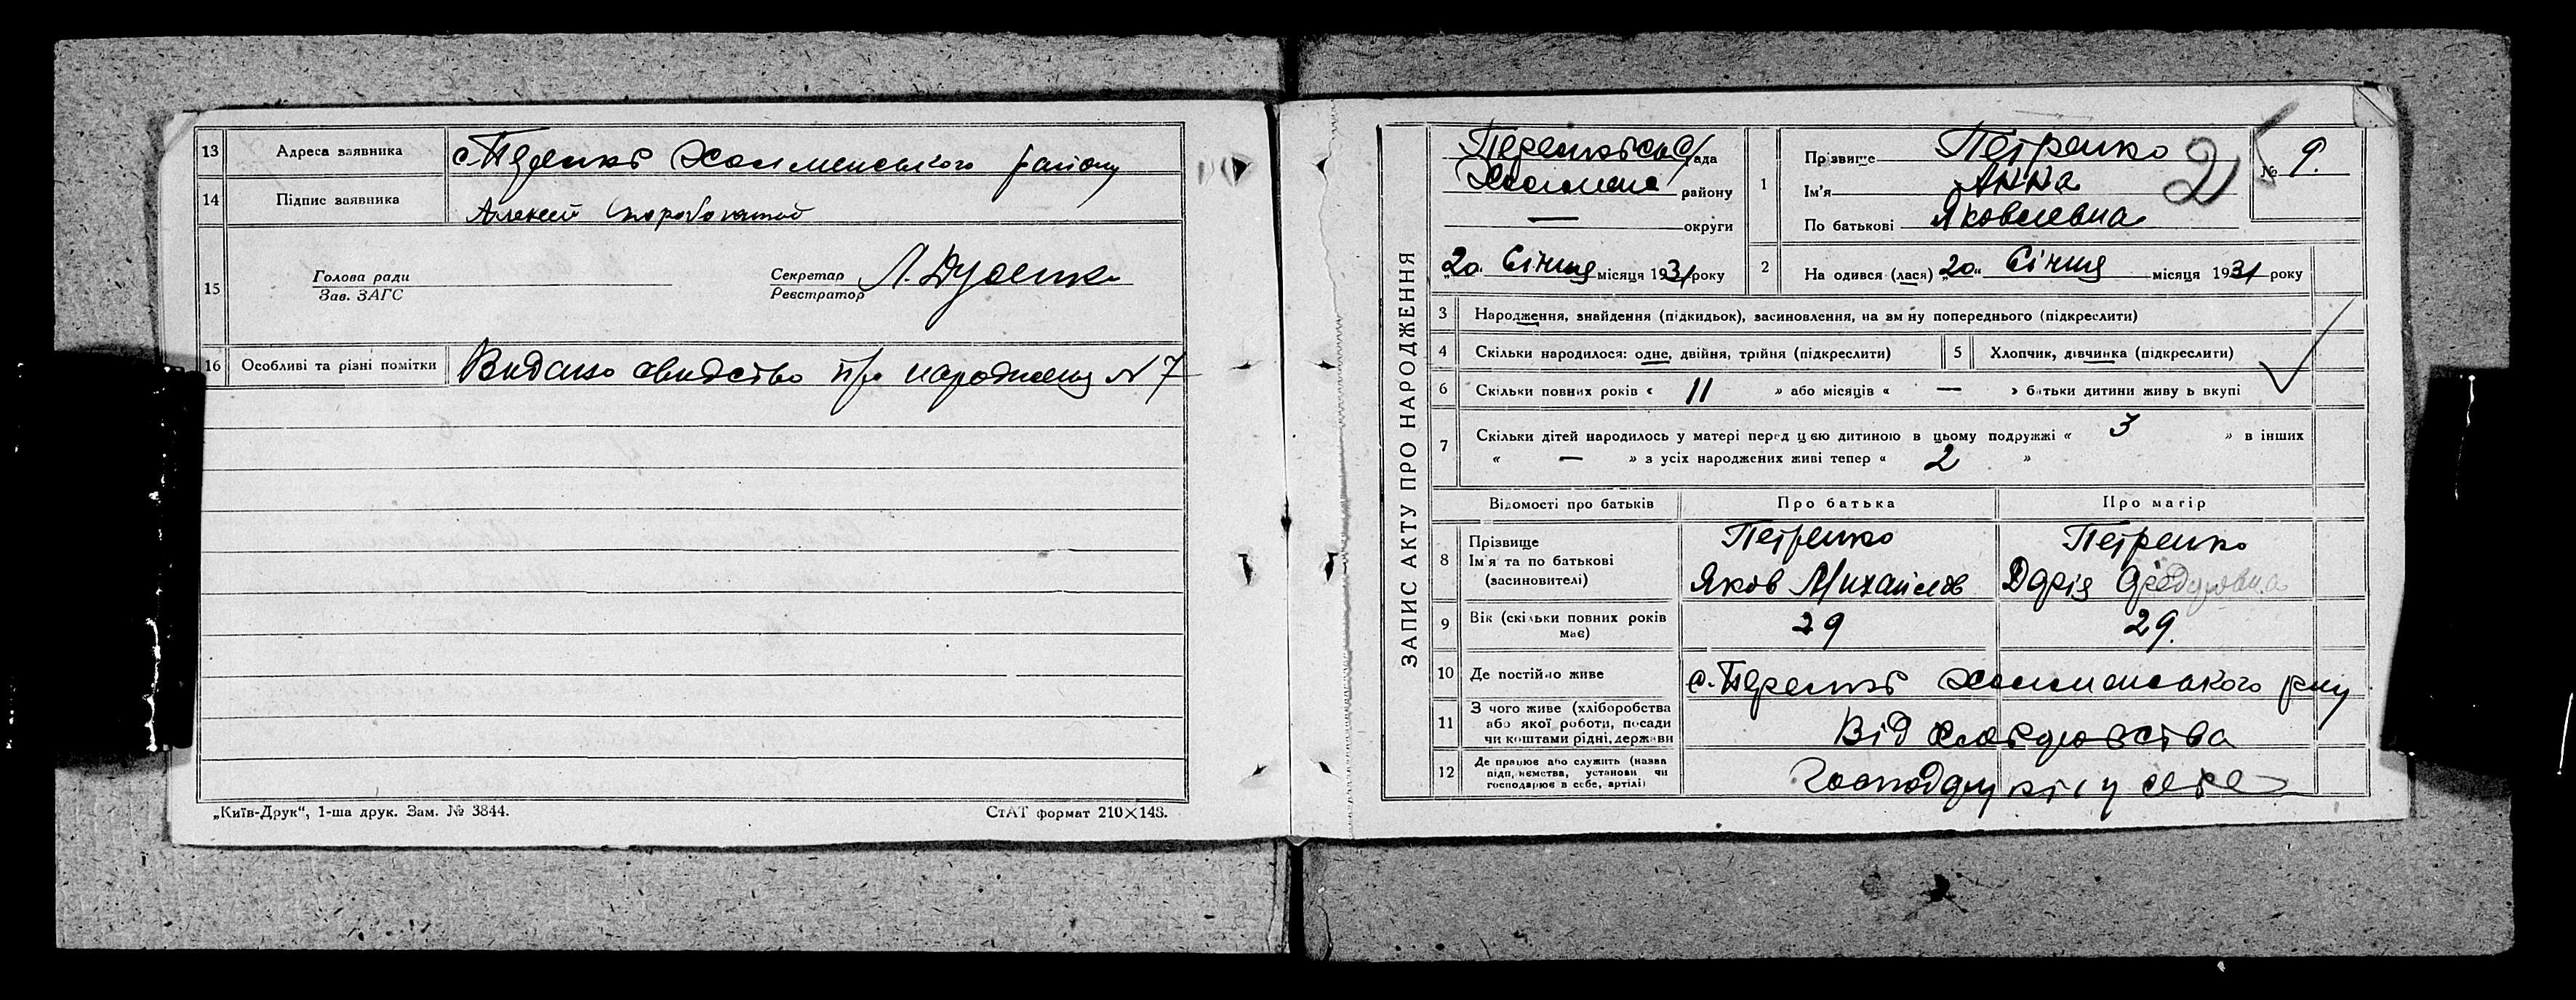 13 Адреса заявника с. Перелюб Холменського району
14 Підпис заявника Алексей
15 Голова ради
Зав. ЗАГС
Секретар
Реєстратор Л.
16 Особливі та різні помітки Видано свидство про народження N 7
„Київ-Друк“, 1-ша друк. Зам. № 3844.
СтАТ формат 210×143.
ЗАПИС АКТУ ПРО НАРОДЖЕННЯ
с/рада
Холменс району
— округи
„20“ Січня місяця 1931 року
1 Прізвище Петренко
Ім'я Анна
По батькові Яковлевна
21
№ 9.
2 На одився (лася) „20“ Січня місяця 1931 року
3 Народження, знайдення (підкидьок), засиновлення, на зм ну попереднього (підкреслити)
4 Скільки народилося: одне, двійня, трійня (підкреслити)
5 Хлопчик, дівчинка (підкреслити)
6 Скільки повних років « 11 » або місяців « — » батьки дитини живу ь вкупі
7 Скільки дітей народилось у матері перед цією дитиною в цьому подружжі « 3 » в інших
« — » з усіх народжених живі тепер « 2 »
Відомості про батьків Про батька Про матір
8 Прізвище
Ім'я та по батькові
(засиновителі)
Петренко
Яков Михайлов
Петренко
Дарія Федоровна
9 Вік (скільки повних років
має)
29
29.
10 Де постійно живе с. Перелюб Холменського р-ну
11 З чого живе (хліборобства
або якої роботи, посади
чи коштами рідні, держави
Від
12 Де працює або служить (назва
підприємства, установи чи
господарює в себе, артілі)
Господарує у себе